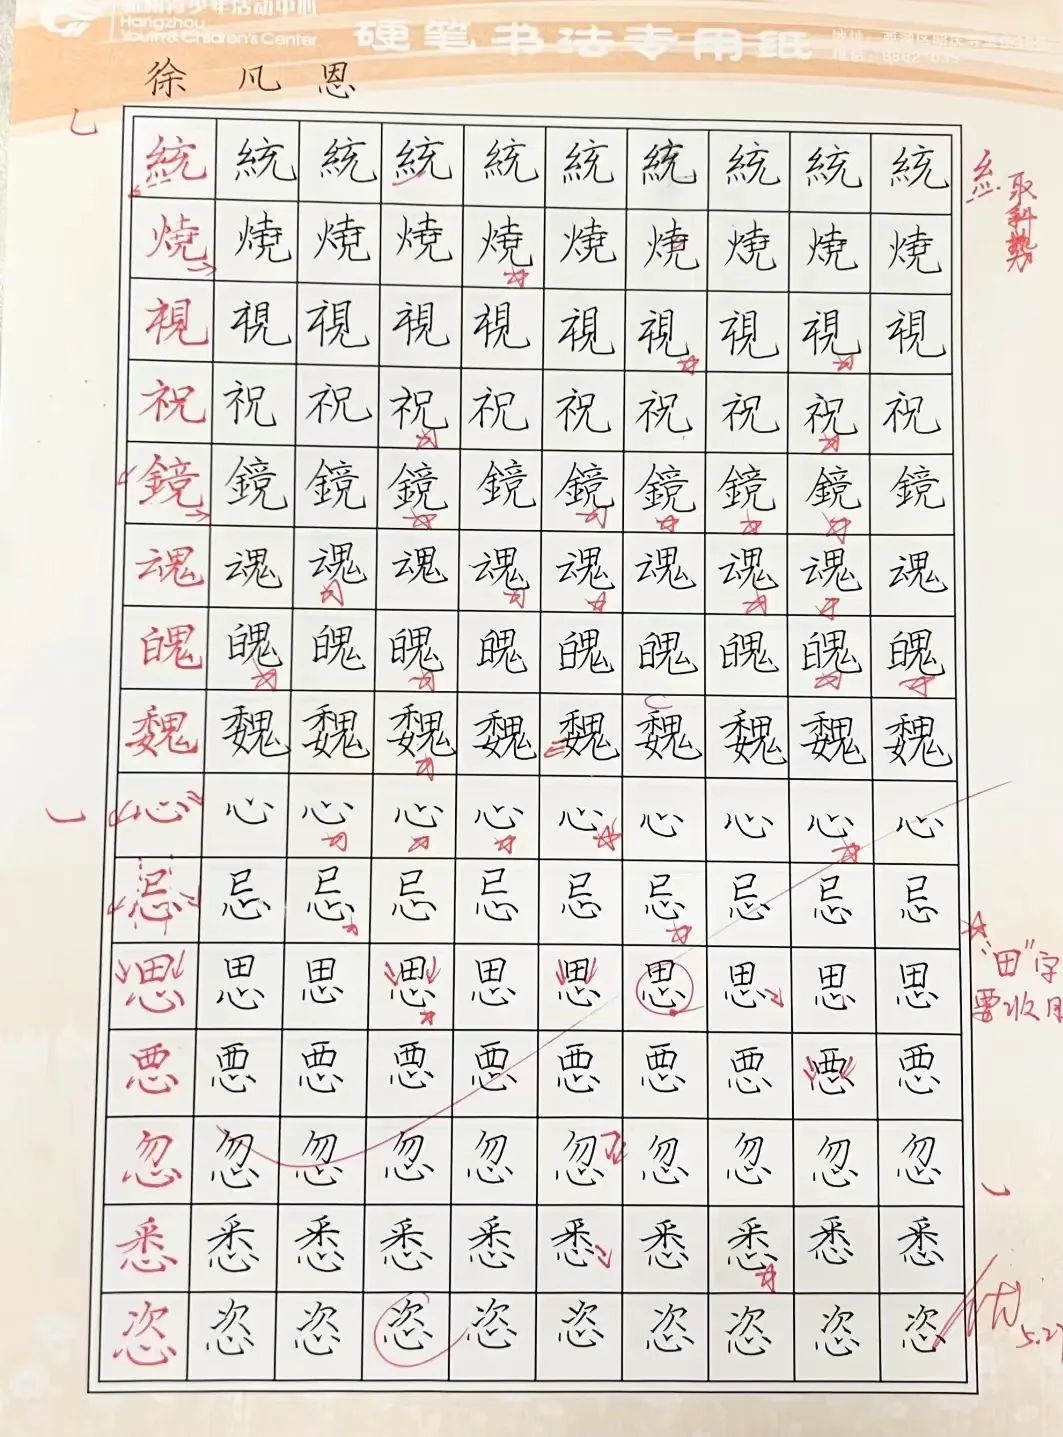 Hangzhou
Youth & Children's Center
硬笔书法专用纸
徐凡恩
統 統 統 統 統 統 統 統 統 統
焼 焼 焼 焼 焼 焼 焼 焼 焼 焼
視 視 視 視 視 視 視 視 視 視
祝 祝 祝 祝 祝 祝 祝 祝 祝 祝
鏡 鏡 鏡 鏡 鏡 鏡 鏡 鏡 鏡 鏡
魂 魂 魂 魂 魂 魂 魂 魂 魂 魂
魄 魄 魄 魄 魄 魄 魄 魄 魄 魄
魏 魏 魏 魏 魏 魏 魏 魏 魏 魏
心 心 心 心 心 心 心 心 心 心
忌 忌 忌 忌 忌 忌 忌 忌 忌 忌
思 思 思 思 思 思 思 思 思 思
悪 悪 悪 悪 悪 悪 悪 悪 悪 悪
忽 忽 忽 忽 忽 忽 忽 忽 忽 忽
悉 悉 悉 悉 悉 悉 悉 悉 悉 悉
恣 恣 恣 恣 恣 恣 恣 恣 恣 恣
糹取斜势
"田"字
要收
优